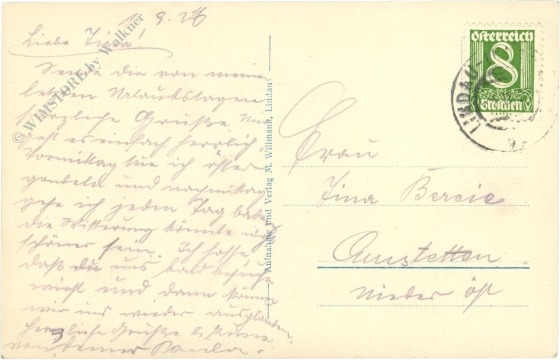 1. 9. 26
Liebe Tina!
Sende dir von meinen
letzten Urlaubstagen
herzliche Grüße. Hier
ist es einfach herrlich.
Vormittag tue ich öfter
gondeln und nachmittag
gehe ich jeden Tag baden
die Witterung könnte nicht
schöner sein. Ich hoffe,
daß du uns bald besuchen
wirst und dann können
wir uns wieder ausplaudern.
Herzliche Grüße
von deiner Paula.
© WIMSTORE by Walkner
Aufnahme und Verlag M. Willmann, Lindau
Österreich
8
Groschen
LINDAU
Frau
Tina Bercie
Amstetten
Nieder Öst